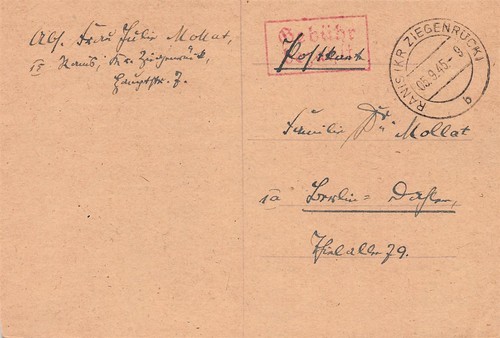 Abs. Frau Julie Mollat,
Ranis, Kr. Ziegenrück,
Hauptstr. 7.
Gebühr
Postkarte
RANIS (KR ZIEGENRÜCK)
9.45.- 9
b
Familie Dr. Mollat
Berlin-Dahlem,
Thielallee 79.